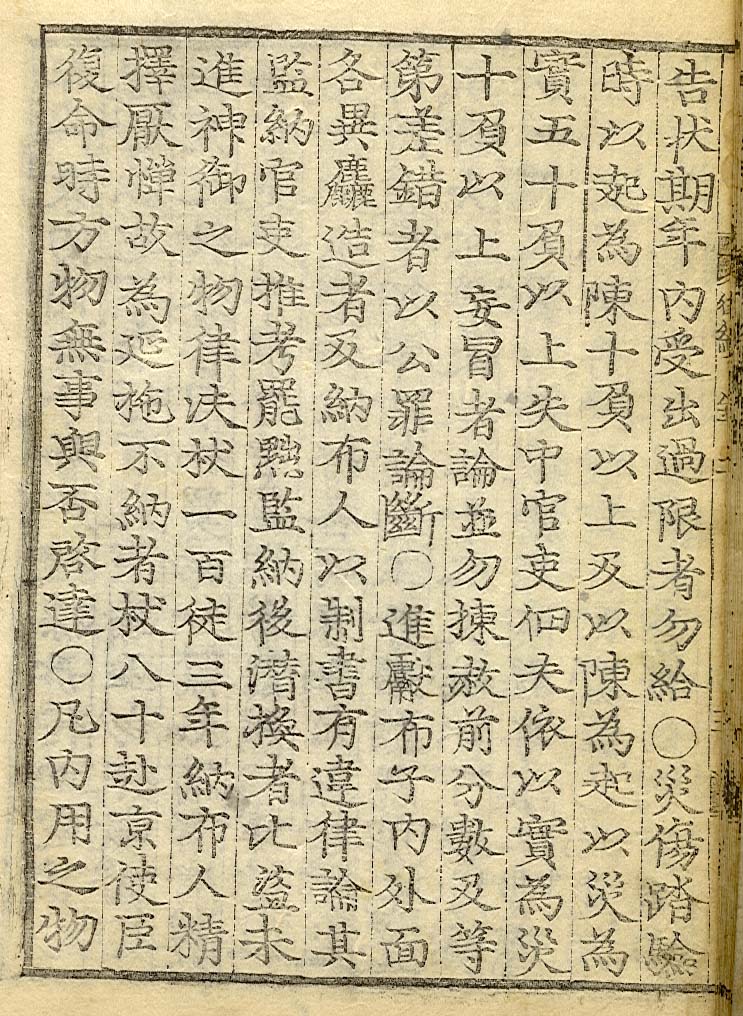 告状期年内受出過限者勿給○災傷踏驗
時以起為陳十負以上及以陳為起以災為
實五十負以上失中官吏佃夫依以實為災
十負以上妄冒者論並勿揀赦前分數及等
第差錯者以公罪論斷○進獻布子内外面
各異麤造者及納布人以制書有違律論其
監納官吏推考罷黜監納後潛換者比盜未
進神御之物律决杖一百徒三年納布人精
擇厭憚故為延拖不納者杖八十赴京使臣
復命時方物無事與否啓達○凡内用之物